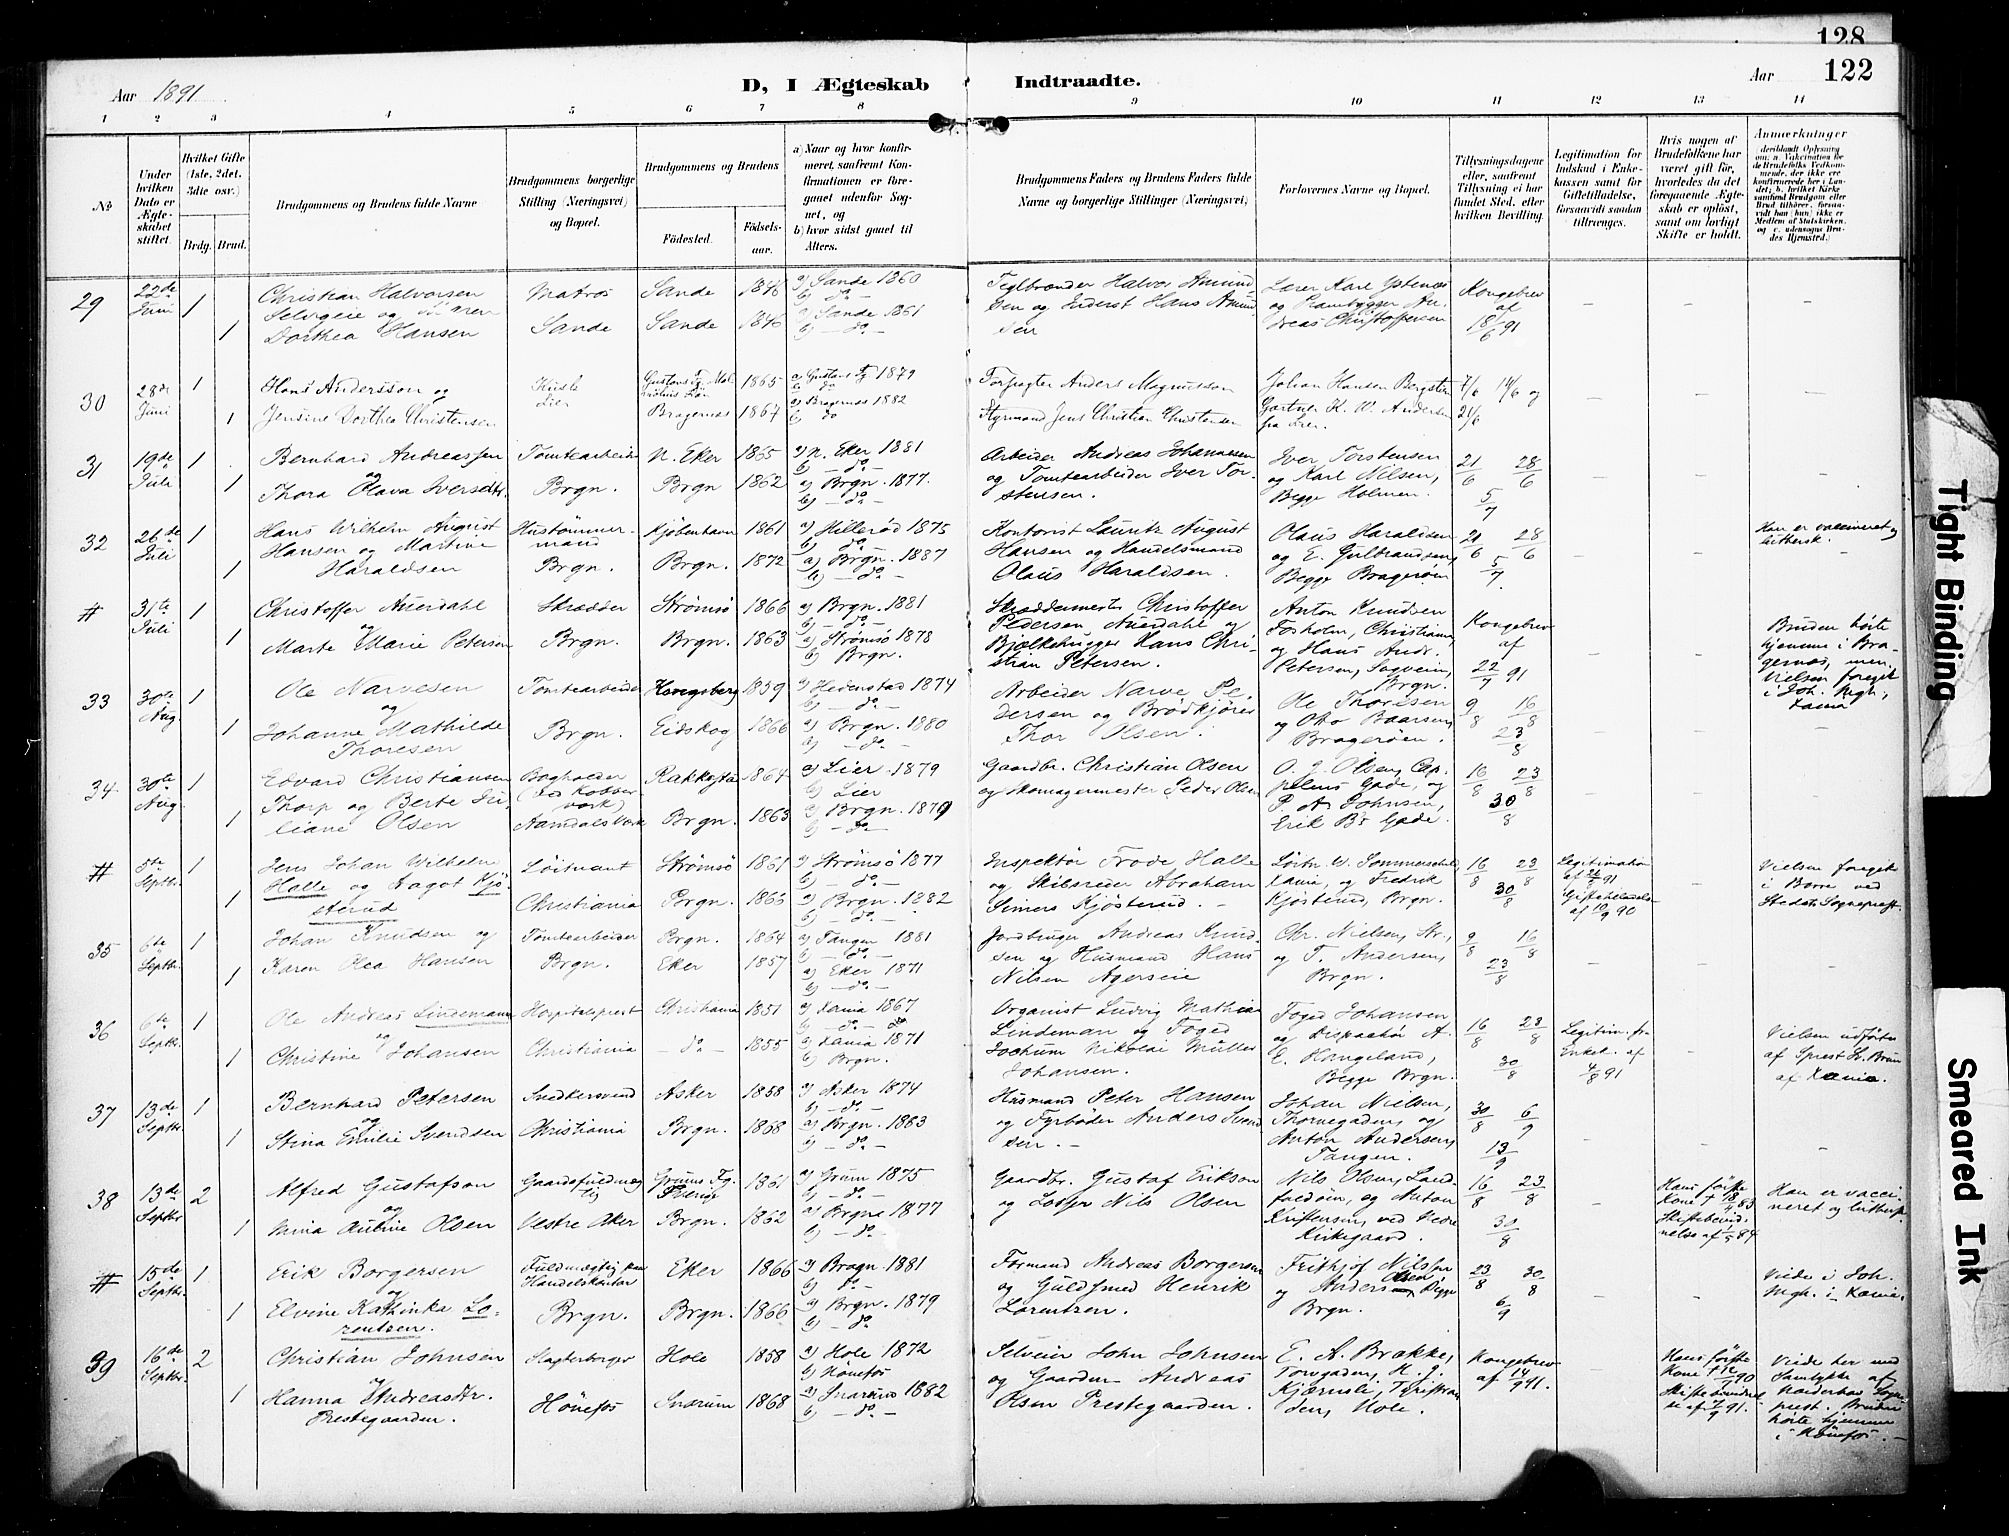 128
122
Aar 1891
D, I Ægteskab Indtraadte.
Aar
1 2 3 4 5 6 7 8 9 10 11 12 13 14
№
Under hvilken Dato er Ægteskabet stiftet.
Hvilket Gifte (1ste, 2det, 3die osv.)
Brdg. Brud.
Brudgommens og Brudens fulde Navne
Brudgommens borgerlige Stilling (Næringsvei) og Bopæl.
Brudgommens og Brudens
Fødested.
Fødselsaar.
a) Naar og hvor konfirmeret, saafremt Konfirmationen er foregaaet udenfor Sognet, og
b) hvor sidst gaaet til Alters.
Brudgommens Faders og Brudens Faders fulde Navne og borgerlige Stillinger (Næringsvei)
Forlovernes Navne og Bopæl.
Tillysningsdagene eller, saafremt Tillysning ei har fundet Sted, efter hvilken Bevilling.
Legitimation for Indskud i Enkekassen samt for Giftetilladelse, forsaavidt saadan tiltrænges.
Hvis nogen af Brudefolkene har været gift før, hvorledes da det foregaaende Ægteskab er opløst, samt om lovligt Skifte er holdt.
Anmærkninger
29 22de Juni 1 Christian Halvorsen Matros Sande 1848 a) Sande 1860
Selvgeie og
1 Dorthea Hansen Sande Sande 1846 a) Sande 1861
b) do
Teglbrænder Halvor Amundsen og Inderst Hans Amundsen
Lærer Karl Ystenes og Prambygger Andreas Christoffersen
Kongebrev af 18/6 91
30 28de Juni 1 Hans Andersson og
Lier
1865 1879
1 Jensine Dorthea Christensen Bragernes 1864 a) Bragernes 1882
b) do
Forpagter Anders Magnusson
Styrmand Jens Christian Christensen
Johan Hansen Bergsten
Gartner K. W. Andersen fra Lier.
7/6 14/6 og 21/6
31 19de Juli 1 Bernhard Andreassen Tomtearbeider N. Eker 1865 a) N. Eker 1881
og b) do
1 Thora Olava Iversdtr. Brgn. Brgn 1862 a) Brgn. 1877.
b) do
Arbeider Andreas Johannesen og Tomtearbeider Iver Torstensen.
Iver Torstensen og Karl Nilsen, Begge Holmen.
21/6 28/6 5/7
32 26de Juli 1 Hans Wilhelm August Hustømmermand Kjøbenhavn 1861 a) Hillerød 1875
Hansen og Martine b) do
1 Haraldsen Brgn. Brgn. 1872 a) Brgn. 1887
b) do
Kontorist Lauritz August Hansen og Handelsmand Olaus Haraldsen.
Olaus Haraldsen og E. Gulbrandsen, Begge Bragerøen
21/6 28/6 5/7.
Han er vaccineret og luthersk.
# 31te Juli 1 Christoffer Auerdahl Skrædder Strømsø 1866 a) Brgn. 1881
og b) do
1 Marte Marie Petersen Brgn. Brgn. 1863 a) Strømsø 1878
b) Brgn.
Skræddermester Christoffer Pedersen Auerdahl og Bjælkehugger Hans Christian Petersen.
Anton Knudsen Fosholm, Christiania, og Hans Andr. Petersen, Sagveien, Brgn.
Kongebrev af 22/7 91
Bruden hørte hjemme i Bragernes, men Vielsen foregik i Joh. Mgh., Xania
33 30te Aug. 1 Ole Narvesen Tomtearbeider Kongsberg 1859 a) Hedenstad 1874
og b) do
1 Johanne Mathilde Thoresen Brgn. Eidskog 1866 a) Brgn. 1880
b) do
Arbeider Narve Pedersen og Brødkjører Thor Olsen.
Ole Thoresen og Otto Baarsen, Bragerøen.
9/8 16/8 23/8
34 30te Aug. 1 Edvard Christiansen Bogholder Rakkestad 1864 a) Lier 1879
Thorp og Berte Ju- (ved Kobberværk) b) Lier
1 liane Olsen Aamdals Værk Brgn. 1863 a) Brgn. 1879
b) do
Gaardbr. Christian Olsen og Skomagermester Peder Olsen
O. J. Olsen, Cappelens Gade, og P. A. Johnsen, Erik Bs Gade.
16/8 23/8 30/8
# 5te Septbr. 1 Jens Johan Wilhelm Løitnant Strømsø 1861 a) Strømsø 1877
Halle og Dagot Kjø- b) do
1 sterud Christiania Brgn. 1866 a) Brgn. 1882
b) do
Inspektør Frode Halle og Skibsreder Abraham Simers Kjøsterud.
Løitn. W. Sommerschield, Xania, og Fredrik Kjøsterud, Brgn.
16/8 23/8 30/8
Legitimation
Vielsen foregik i Borre ved Stedets Sogneprest.
35 6te Septbr. 1 Johan Knudsen og Tomtearbeider Brgn. 1864 a) Tangen 1881
b) do
1 Karen Olea Hansen Brgn. Eker 1857 a) Eker 1871
b) do
Jordbruger Andreas Knudsen og Husmand Hans Nilsen Agerseie
Chr. Nielsen, Str., og T. Andersen, Brgn.
9/8 16/8 23/8
36 6te Septbr. 1 Ole Andreas Lindemann Hospitalsprest Christiania 1851 a) Xania 1867
og b) do
1 Christine Johansen Christiania do 1855 a) Xania 1871
b) Brgn.
Organist Ludvig Mathias Lindeman og Foged Jochum Nikolai Müller Johansen.
Foged Johansen og Dispachør A. E. Haugeland, Begge Brgn.
16/8 23/8 30/8
Legitim. fr. Enkek. af 4/8 91
Vielsen udførtes af Sprest Sv. Brun af Xania.
37 13de Septbr. 1 Bernhard Petersen Snedkersvend Asker 1858 a) Asker 1874
og b) do
1 Stina Emilie Svendsen Christiania Brgn. 1868 a) Brgn. 1883
b) do
Husmand Peter Hansen og Fyrbøder Anders Svendsen.
Johan Nielsen, Thornegaden, og Anton Andersen, Tangen.
30/8 6/9 13/9
38 13de Septbr 2 Alfred Gustafson Gaardsfuldmægtig Grums Sg. Sverige 1861 a) Grum 1875
og b) do
1 Mina Aubine Olsen Vestre Aker Brgn. 1862 a) Brgns 1877
b) do
Gaardbr. Gustaf Erikson og Lods Nils Olsen
Nils Olsen, Landfaldøen, og Anton Kristensen, ved Nedre Kirkegaard.
16/8 23/8 30/8
Hans første Kone † 83
Skiftebevidnelse af 84
Han er vaccineret og luthersk.
# 15de Septbr. 1 Erik Borgersen Fuldmægtig paa Handelskontor Eker 1866 a) Bragn. 1881
og b) do
1 Elvine Kathinka Lorentsen. Brgn. Brgn. 1866 a) Brgn. 1879
b) do
Formand Andreas Borgersen og Guldsmed Henrik Lorentzen.
Frithjof Nilsen og Anders Olsen, Begge Brgn.
23/8 30/8 6/9
Viede i Joh. Mgh. i Xania.
39 16de Septbr. 2 Christian Johnsen Slagterborger Hole 1858 a) Hole 1872
b) Hönefos
1 Hanna Andreasdtr. Prestegaarden. Hönefos Snarum 1868 a) Snarum 1882
b) do
Selveier John Johnsen og Gaardm. Andreas Olsen Prestegaarden.
E. A. Brakke, Torvgaden, K. J. Kjærnsli, Hole.
Kongebrev af 14/9 91.
Hans første Kone † 90
Skiftebevidnelse af 7/9 91.
Viede her med Samtykke af Norderhovs Sogneprest. Bruden hørte hjemme i Hønefos.
Tight Binding
Smeared Ink